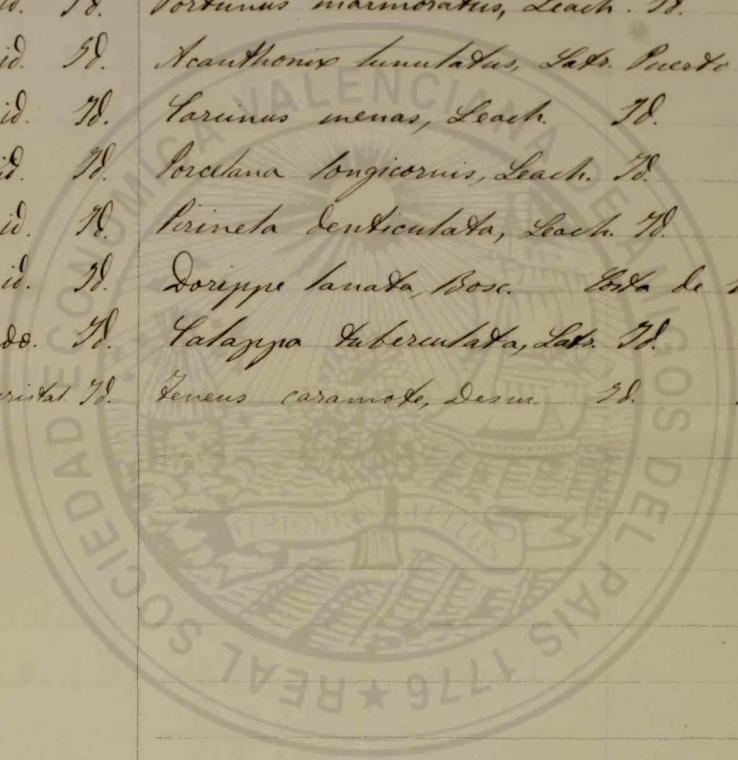 id. Id. Portunus marmoratus, Leach. Id.
id. Id. Acanthonix lunulatus, Latr. Puerto
id. Id. Carcinus menas, Leach. Id.
id. Id. Porcelana longicornis, Leach. Id.
id. Id. Pirinela denticulata, Leach. Id.
id. Id. Dorippe lanata, Bosc. Costa de
do. Id. Calappa tuberculata, Latr. Id.
cristal Id. Peneus caramote, Desm. Id.
REAL SOCIEDAD ECONOMICA VALENCIANA DE AMIGOS DEL PAIS 1776